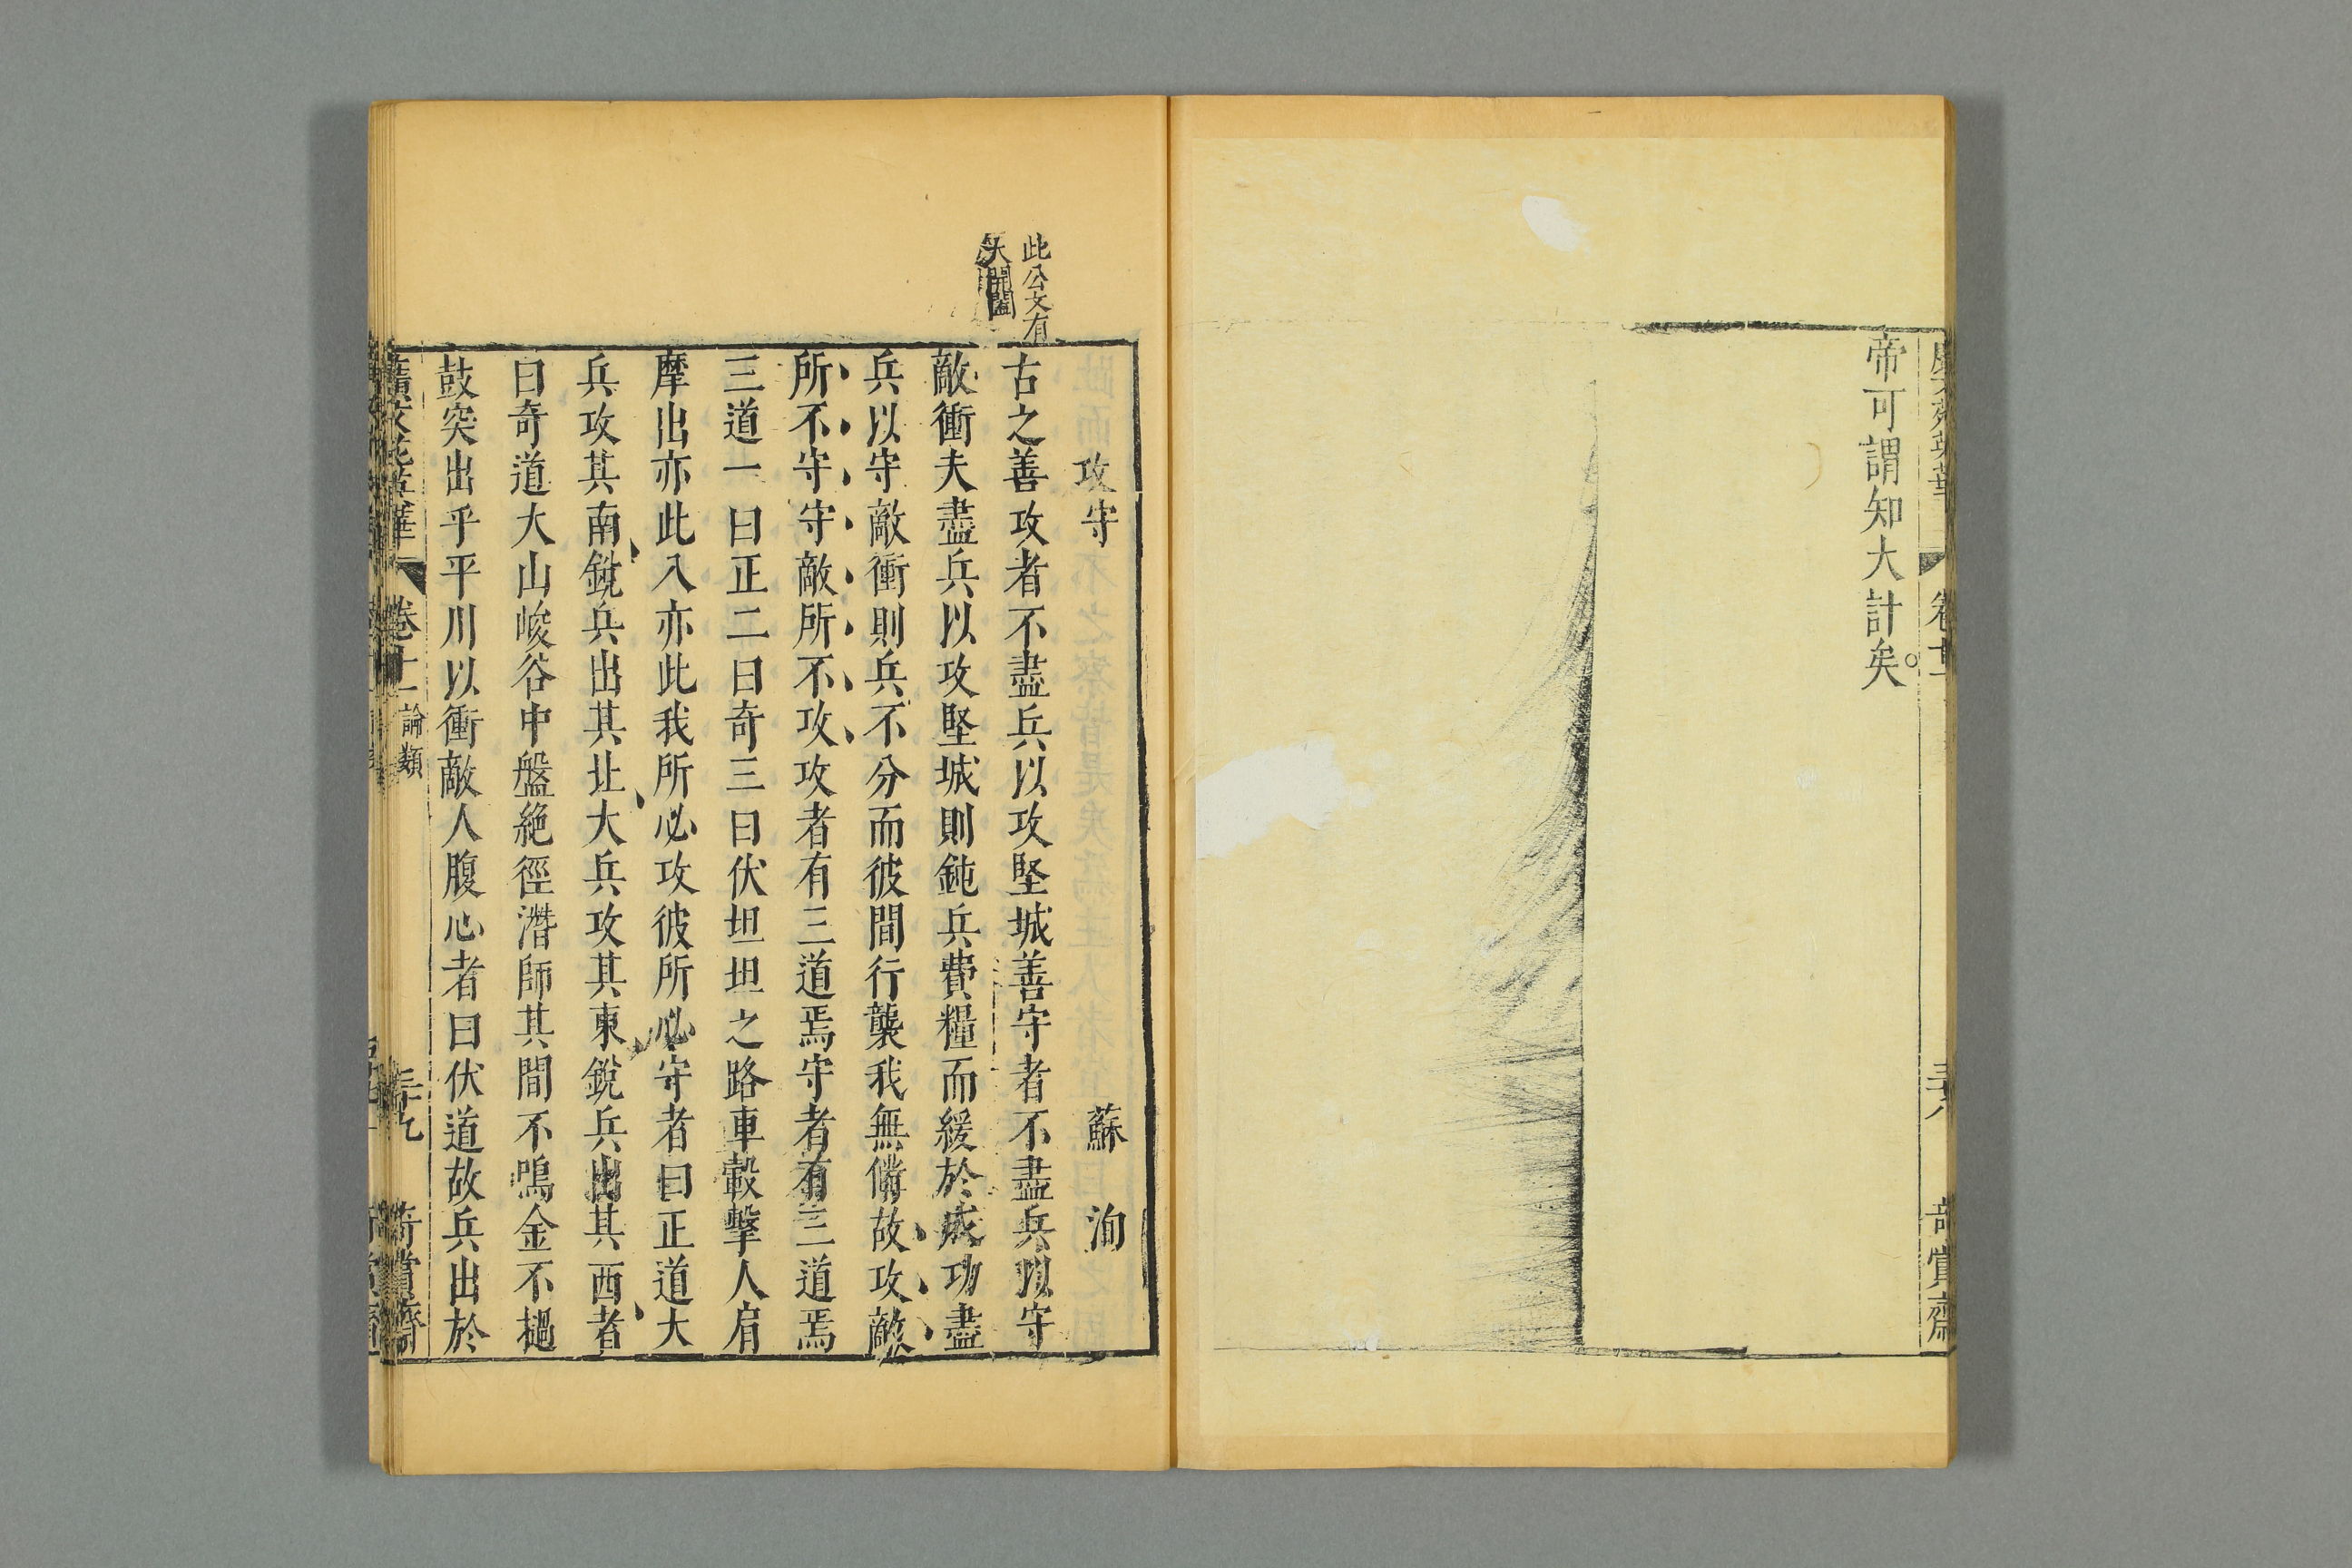 帝可謂知大計矣
卷廿一
三十八
奇賞齋
此公文有
大開闔
攻守
蘇洵
古之善攻者不盡兵以攻堅城善守者不盡兵以守
敵衝夫盡兵以攻堅城則鈍兵費糧而緩於成功盡
兵以守敵衝則兵不分而彼間行襲我無備故攻敵
所不守守敵所不攻攻者有三道焉守者有三道焉
三道一曰正二曰奇三曰伏坦坦之路車轂擊人肩
摩出亦此入亦此我所必攻彼所必守者曰正道大
兵攻其南銳兵出其北大兵攻其東銳兵出其西者
曰奇道大山峻谷中盤絶徑潛師其間不鳴金不撾
鼓突出乎平川以衝敵人腹心者曰伏道故兵出於
廣文苑英華
卷廿一
論類
三十九
奇賞齋